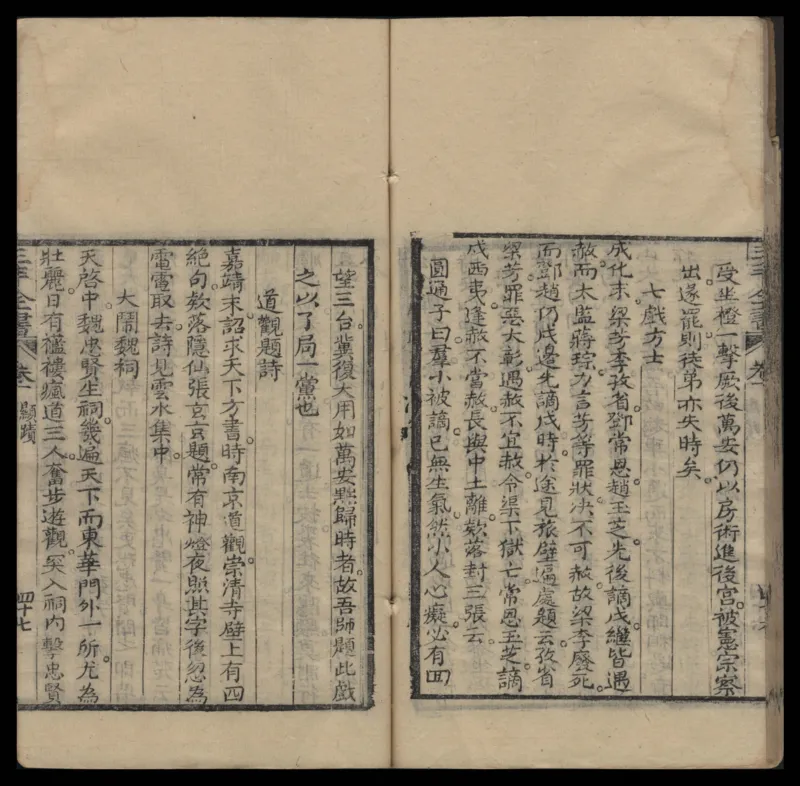 受坐橙一擊厥後萬安仍以房術進後宮被憲宗察
出遂罷則徒弟亦失時矣
七戲方士
成化末梁芳李孜省鄧常恩趙玉芝先後謫戍繼皆遇
赦而太監蔣琮力言芳等罪狀决不可赦故梁李廢死
而鄧趙仍戍邊先謫戍時於途見旅壁遍處題云孜省
梁芳罪惡大彰遇赦不宜赦令渠下獄亡常恩玉芝謫
戍西夷逢赦不當赦長與中土離欵落封三張云
圓通子曰羣小被謫已無生氣然小人心癡必有四
望三台冀復大用如萬安黜歸時者故吾師題此戲
之以了局一黨也
道觀題詩
嘉靖末詔求天下方書時南京道觀崇清寺壁上有四
絕句欵落隱仙張玄玄題常有神燈夜照其字後忽為
雷電取去詩見雲水集中
大鬧魏祠
天啓中魏忠賢生祠幾遍天下而東華門外一所尤為
壯麗日有襤褸瘋道三人奮步遊觀突入祠内擊忠賢
三丰全書 卷一 顯蹟 四十七